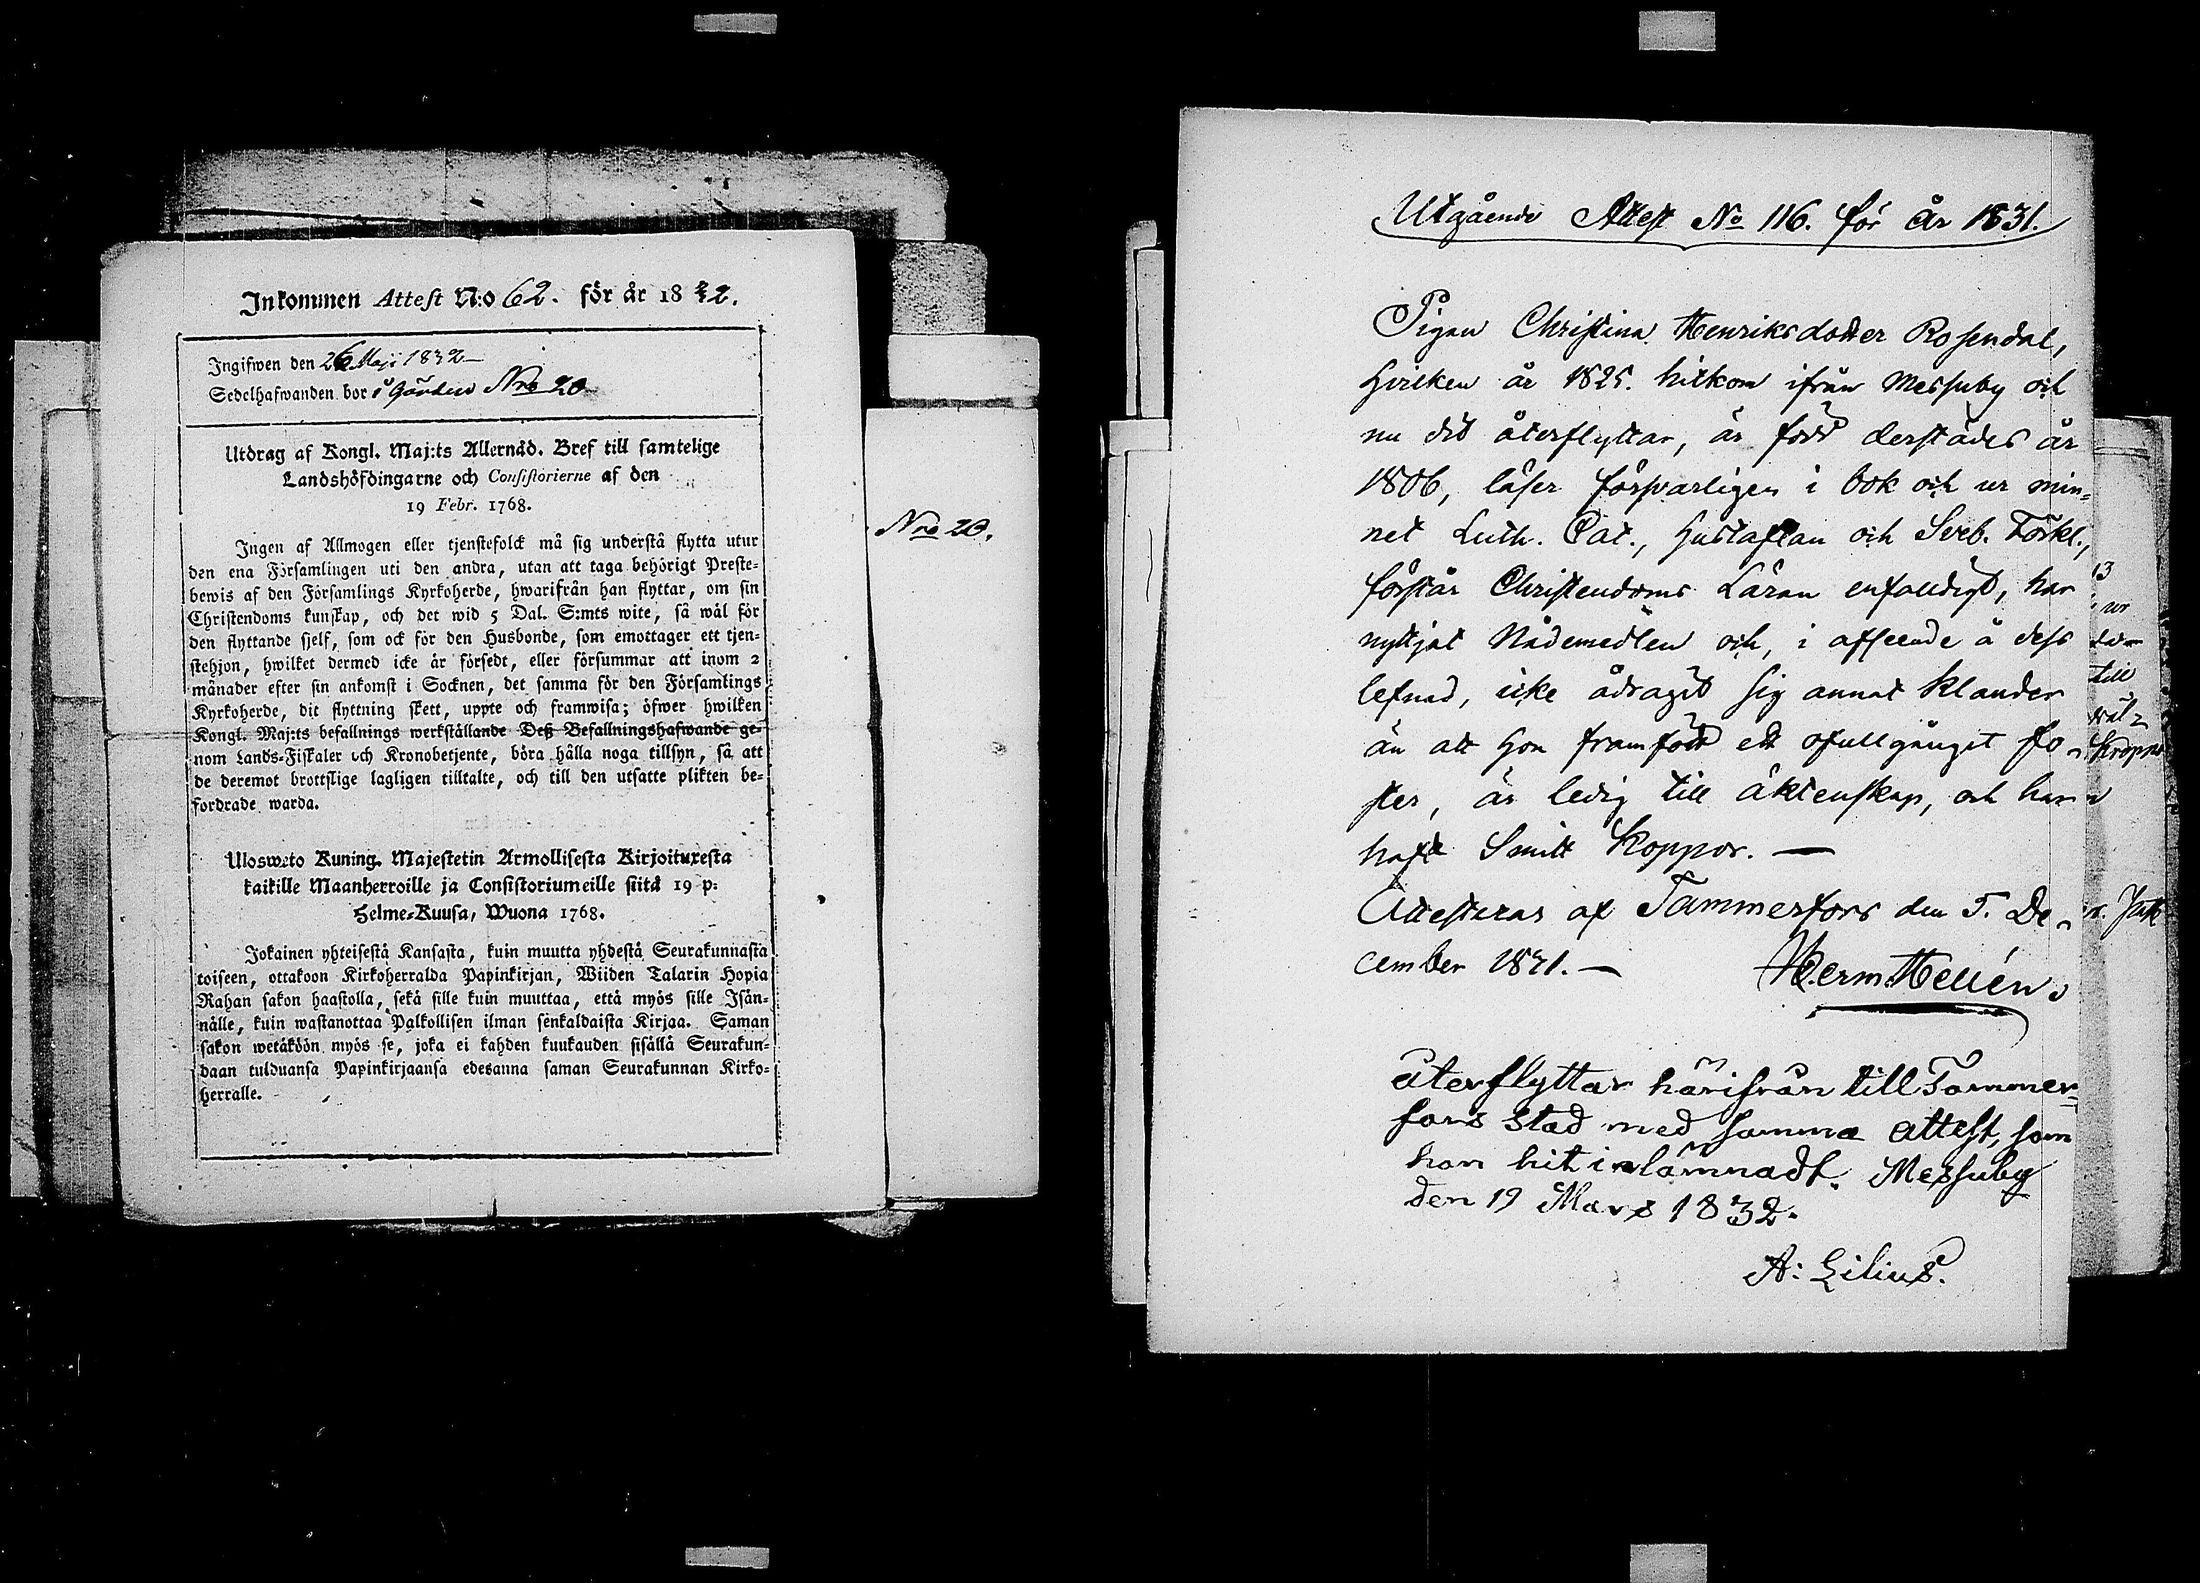 Inkommen Attest N:o 62. för år 1832.
Ingifwen den 26 Maji 1832
Sedelhafwanden bor i Gården Nro 20
Utdrag af Kongl. Maj:ts Allernåd. Bref till samtelige
Landshöfdingarne och Consistorierne af den
19 Febr. 1768.
Ingen af Allmogen eller tjenstefolck må sig understå flytta utur
den ena Församlingen uti den andra, utan att taga behörigt Preste-
bewis af den Församlings Kyrkoherde, hwarifrån han flyttar, om sin
Christendoms kunskap, och det wid 5 Dal. S:mts wite, så wäl för
den flyttande sjelf, som ock för den Husbonde, som emottager ett tjen-
stehjon, hwilket dermed icke är försedt, eller försummar att inom 2
månader efter sin ankomst i Socknen, det samma för den Församlings
Kyrkoherde, dit flyttning skett, uppte och framwisa; öfwer hwilken
Kongl. Maj:ts befallnings werkställande Deß Befallningshafwande ge-
nom Lands-Fiskaler och Kronobetjente, böra hålla noga tillsyn, så att
de deremot brottslige lagligen tilltalte, och till den utsatte plikten be-
fordrade warda.
Ulosweto Kuning. Majestetin Armollisesta Kirjoituxesta
kaikille Maanherroille ja Consistoriumeille siitä 19 p:
Helme-Kuusa, Wuona 1768.
Jokainen yhteisestä Kansasta, kuin muutta yhdestä Seurakunnasta
toiseen, ottakoon Kirkoherralda Papinkirjan, Wiiden Talarin Hopia
Rahan sakon haastolla, sekä sille kuin muuttaa, että myös sille Isän-
nälle, kuin wastanottaa Palkollisen ilman senkaldaista Kirjaa. Saman
sakon wetäköön myös se, joka ei kahden kuukauden sisällä Seurakun-
daan tulduansa Papinkirjaansa edesanna saman Seurakunnan Kirko-
herralle.
Nro 20.
Utgående Attest No 116. för år 1831.
Pigan Christina Henriksdotter Rosendal,
hvilken år 1825. hitkom ifrån Messuby och
nu dit återflyttar, är född derstädes år
1806, läser försvarligen i bok och ur min-
net Luth. Cat., Hustaflan och Sveb. Förkl.,
förstår Christendoms Läran enfaldigt, har
nyttjat Nådemedlen och, i afseende å dess
lefnad, icke ådragit sig annat klander
än att hon framfödt ett ofullgånget fo-
ster, är ledig till äktenskap, och har
haft Smitt Koppor. —
Attesteras af Tammerfors den 5. De-
cember 1831. —
Herm. Hellén.
återflyttar härifrån till Tammer-
fors stad med samma attest, som
hon hit inlämnadt. Messuby
den 19 Mars 1832.
A: Lilius.
13
ur
till
väl-
Koppor